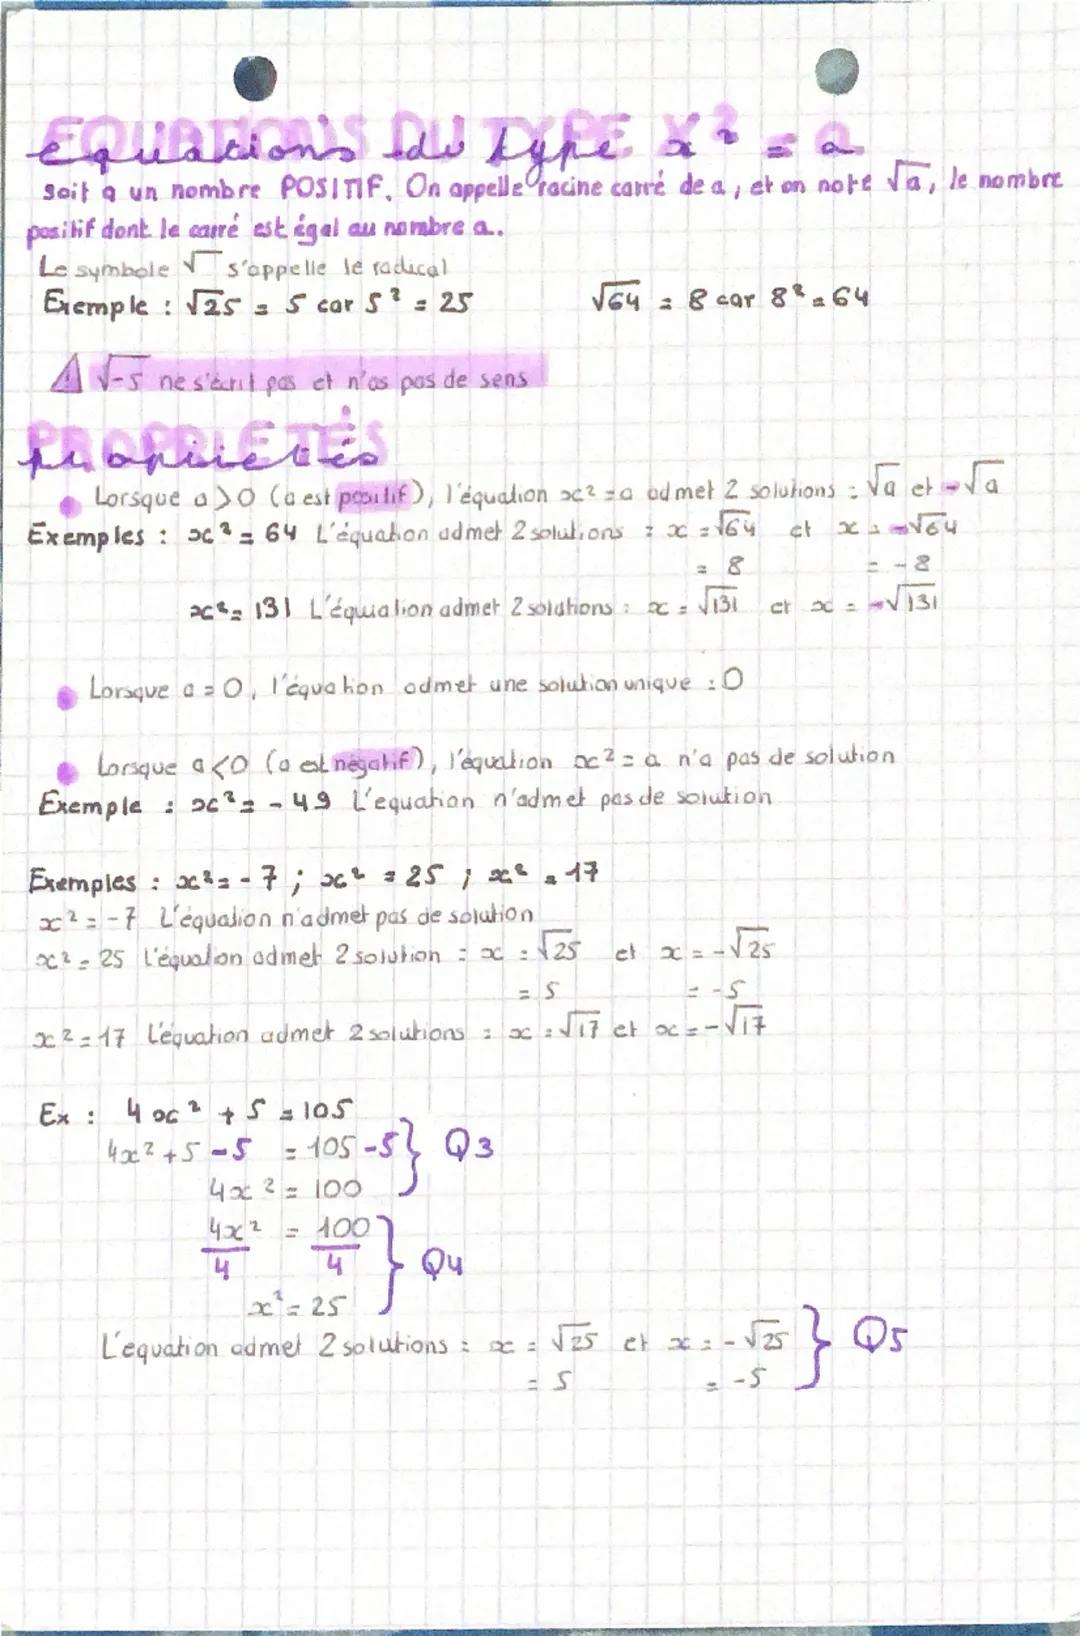 EQUATIONS DU TYPE X² = a
équations du type x² = a
Soit a un nombre POSITIF. On appelle racine carré de a, et on note √a, le nombre
positif dont le carré est égal au nombre a.
Le symbole √ s'appelle le radical
Exemple : √25 = 5 car 5² = 25 √64 = 8 car 8² = 64
⚠ √-5 ne s'écrit pas et n'as pas de sens
PROPRIETÉS
propriétés
Lorsque a > 0 (a est positif), l'équation x² = a admet 2 solutions : √a et -√a
Exemples : x² = 64 L'équation admet 2 solutions : x = √64 et x = -√64
= 8 = -8
x² = 131 L'équiation admet 2 solutions : x = √131 et x = -√131
Lorsque a = 0, l'équation admet une solution unique : 0
Lorsque a < 0 (a est négatif), l'équation x² = a n'a pas de solution
Exemple : x² = - 49 L'equation n'admet pas de solution
Exemples : x² = - 7 ; x² = 25 ; x² = 17
x² = -7 L'équation n'admet pas de solution
x² = 25 L'équation admet 2 solution : x = √25 et x = -√25
= 5 = -5
x² = 17 L'équation admet 2 solutions : x = √17 et x = -√17
Ex : 4x² + 5 = 105
4x² + 5 - 5 = 105 - 5 } Q3
4x² = 100
4x² = 100
4 4 } Q4
x² = 25
L'equation admet 2 solutions : x = √25 et x = -√25 } Q5
= 5 = -5